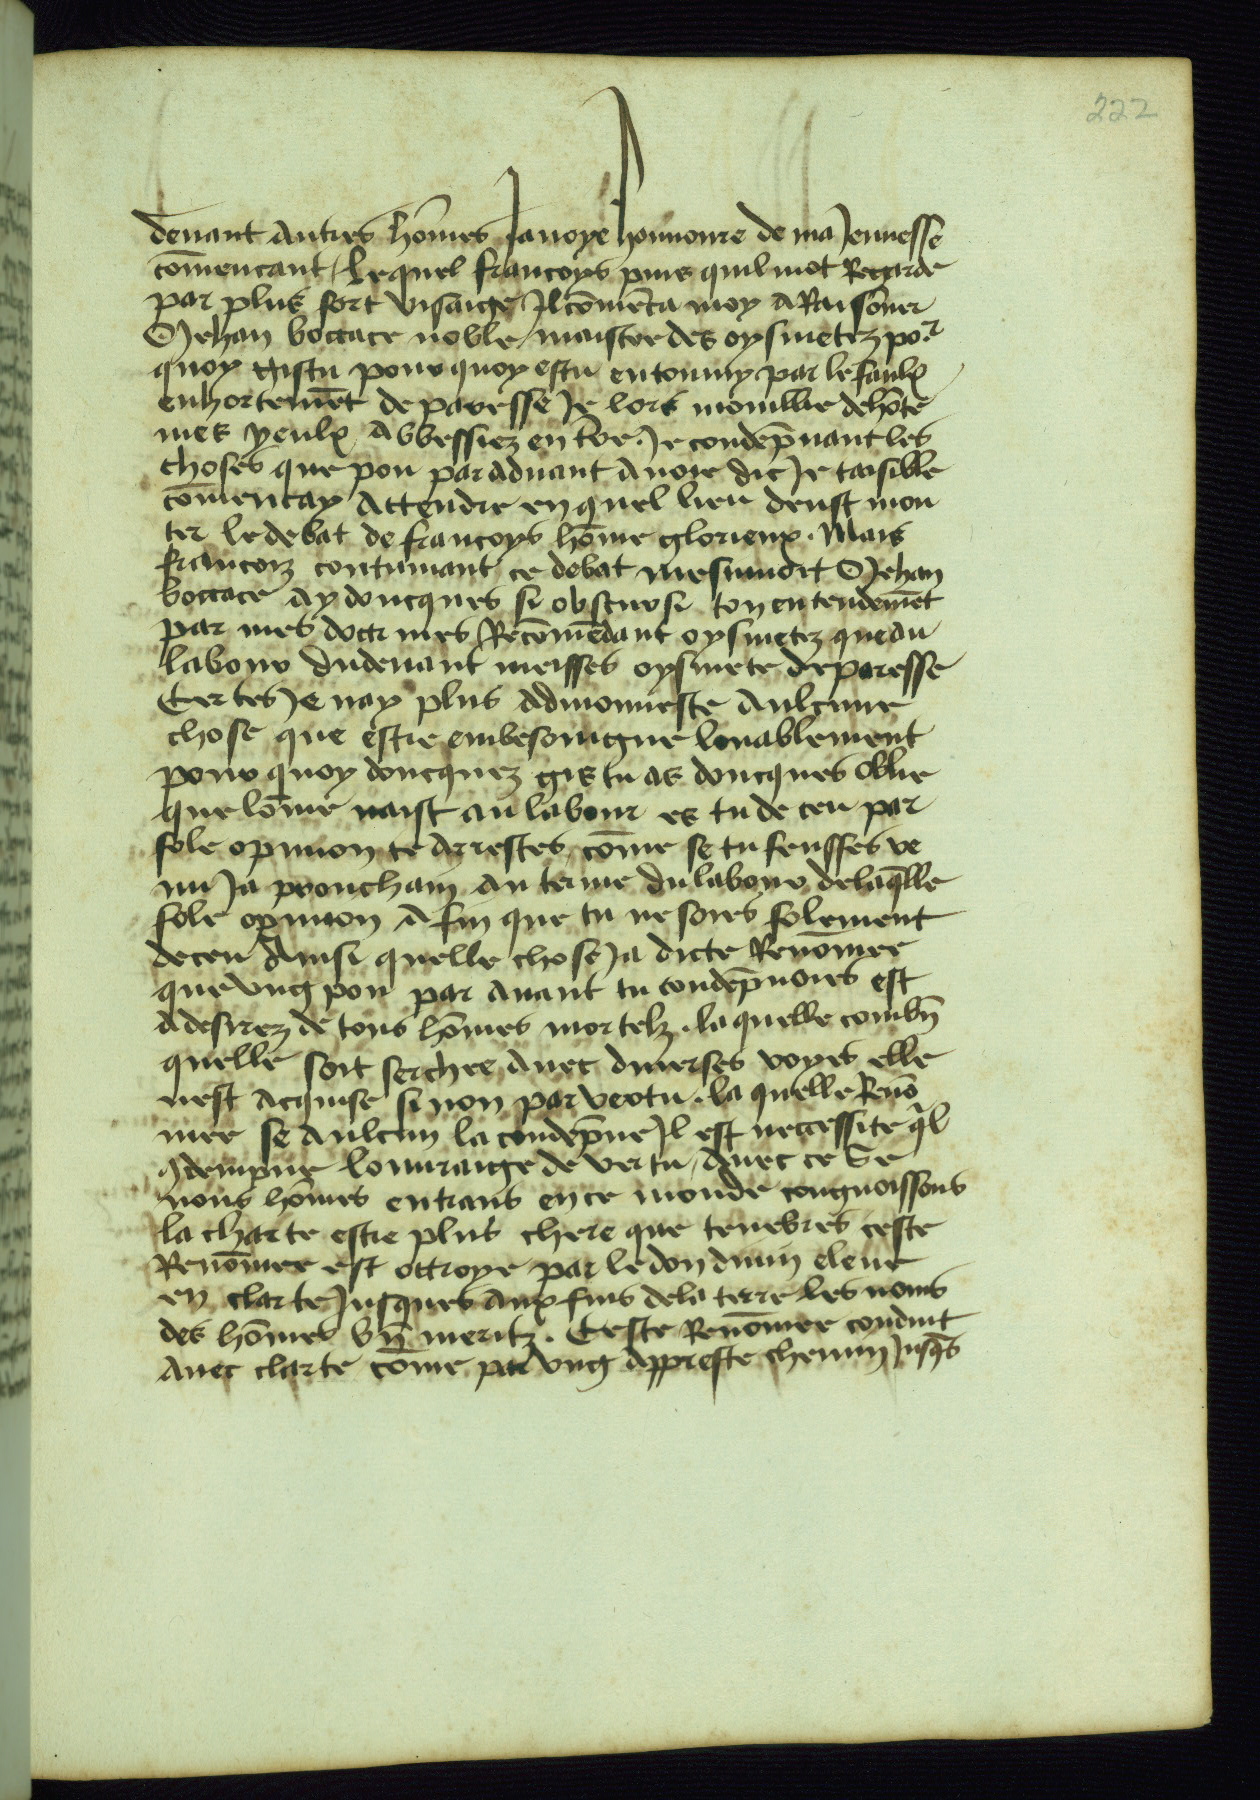 222
devant autres hōmes Javoye honnoure de ma Jeunesse
cōmencant / Lequel francoys puis quil mot Regarde
par plus fort visaige Il cōmēca moy a Raisōner
O Jehan boccace noble maistre des oysivetez por
quoy gistu pour quoy estu entourny par le faulx
enhortemēt de paresse Je lors mouillie de hōte
mes yeulx abbessiez en tr̄e . Je condēpnant les
choses que pou par advant avoie dit Je taisible
cōmencay attendre en quel lieu deust mon
ter le debat de francoys hōme glorieux . Mais
francois continuant ce debat me sumont O Jehan
boccace ay doncques si obscursi ton entendemēt
par mes doctrines Recōmēdant oysivetez que au
labour du devant meisses oysivete de paresse
Certes Je nay plus admonneste aulcune
chose que estre embesoingne louablement
pour quoy doncquez gis tu as doncques oblie
que lōme naist au labour es tu de ceu par
fole opinion te arrestes / cōme se tu feusses ve
nu Ja prouchain au terme du labour de laq̄lle
fole opinion a fin que tu ne soies folement
deceu ainsi quelle chose Ja dicte Renōmee
que ung pou par avant tu condēpnoies est
a desirez de tous hōmes mortelz . la quelle combn̄
quelle soit serchee avec diverses voyes elle
nest acquise si non par vertu . la quelle Renō
mee se aulcun la condēpne Il est neccessite q̄l
9dempne louvraige de vertu / avec ce Se
nous hōmes entrans en ce monde congnoissons
la charte estre plus chere que tenebres ceste
Renōmee est ottroye par le don divin eleve
en clarte Jusques aux fins de la terre les noms
des hōmes bn̄ meritz . Ceste Renōmee conduit
avec clarte cōme par ung appreste chemin Jusq̄s